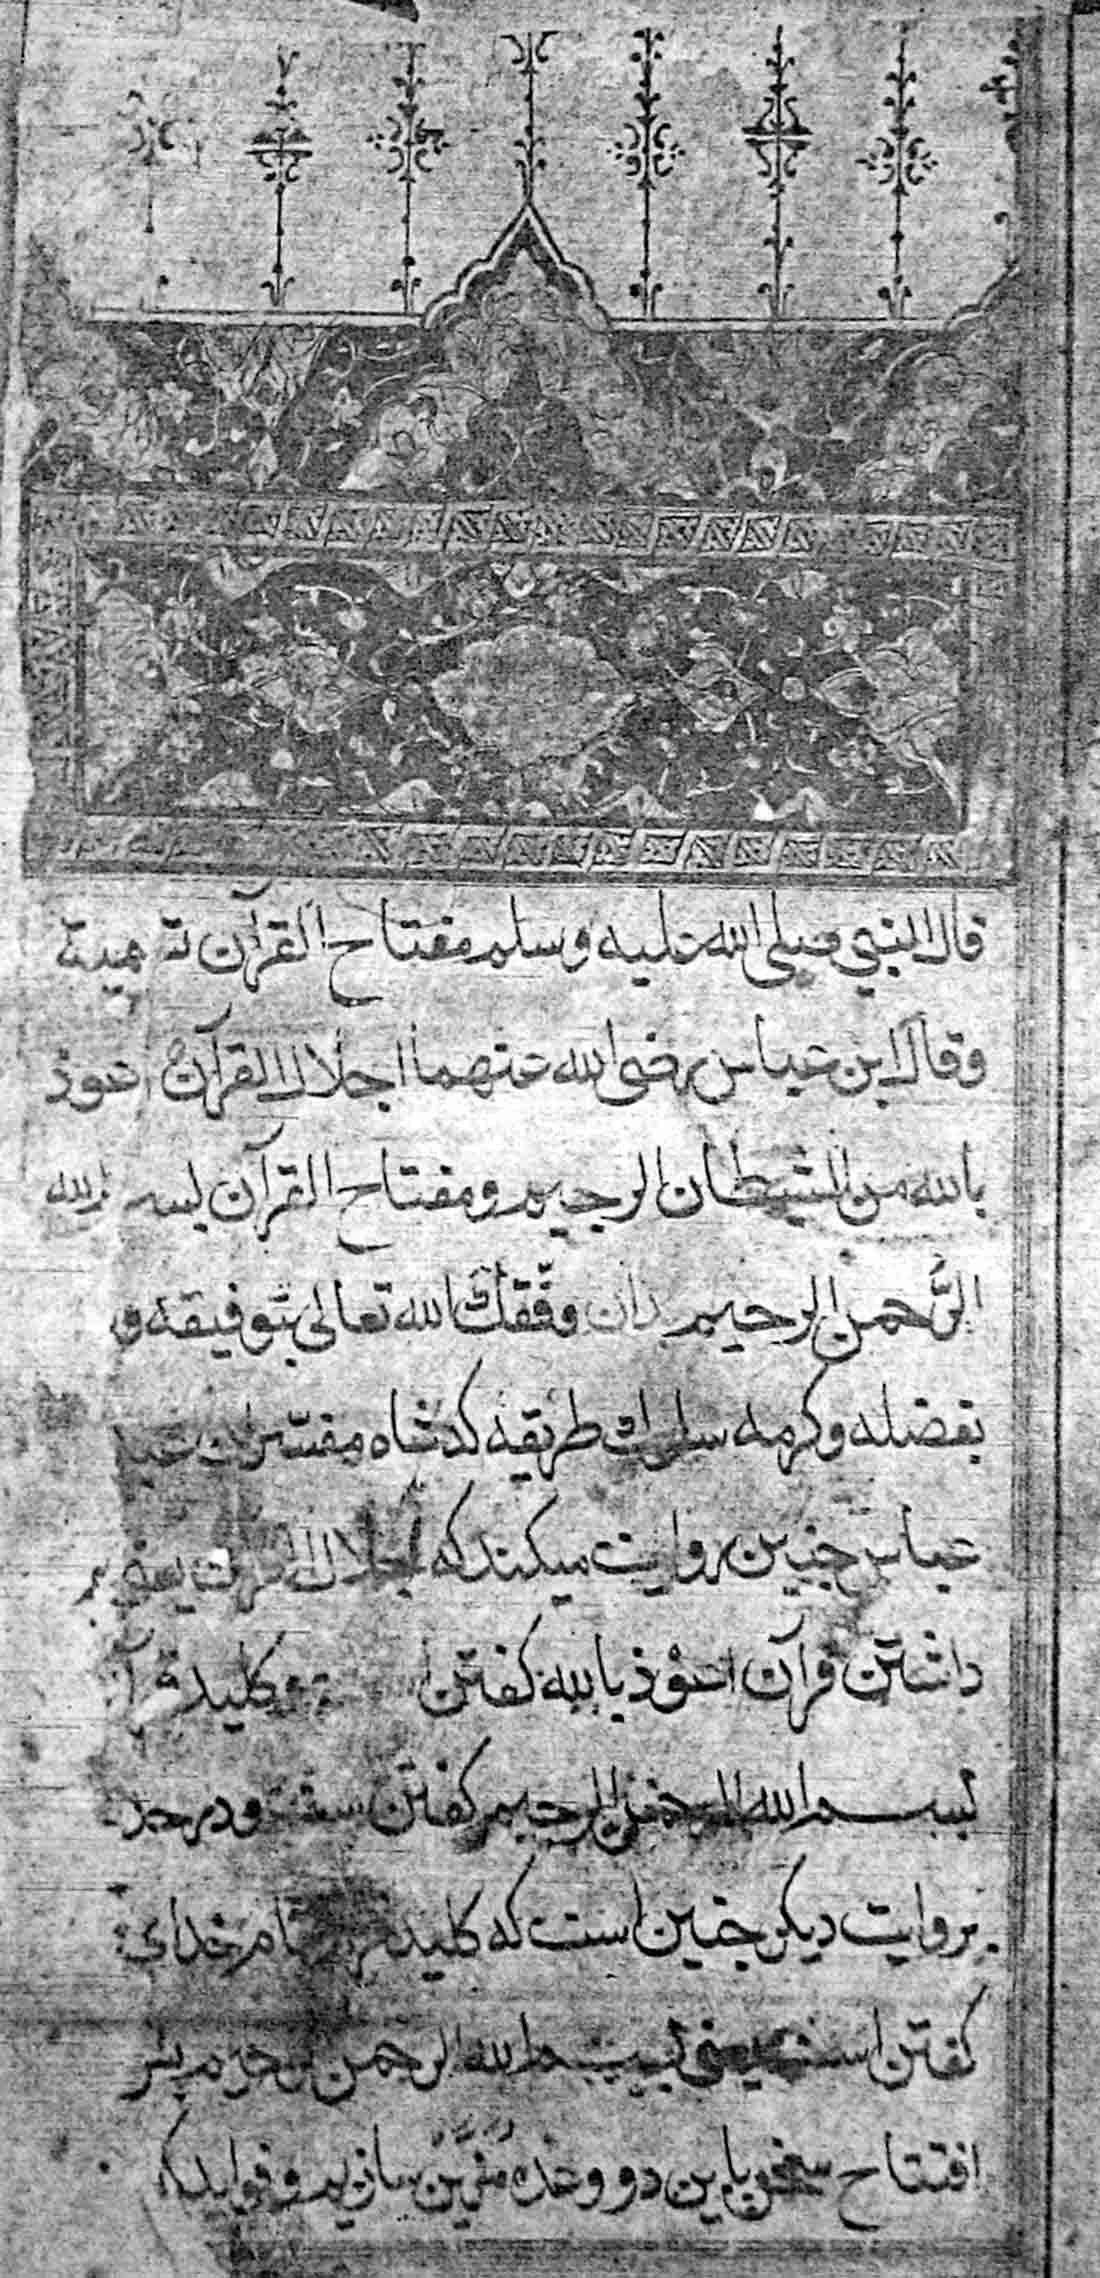 قال النبي صلى الله عليه وسلم مفتاح القرآن تسمية
وقال ابن عباس رضى الله عنهما اجلال القرآن اعوذ
بالله من الشيطان الرجيم ومفتاح القرآن بسم الله
الرَّحمن الرحيم دان وفّقك الله تعالى بتوفيقه و
بفضله وكرمه سلوك طريقه كه شاه مفسّران
عباس چنين روايت ميكند كه اجلال القرآن يعنى
داشتن قرآن اعوذ بالله كفتن كليد قرآن
بسم الله الرحمن الرحيم كفتن ودر
روايت ديكر چنين است كه كليد نام خداى
كفتن است يعنى بسم الله الرحمن الرحيم پس
افتتاح سخن باين دو